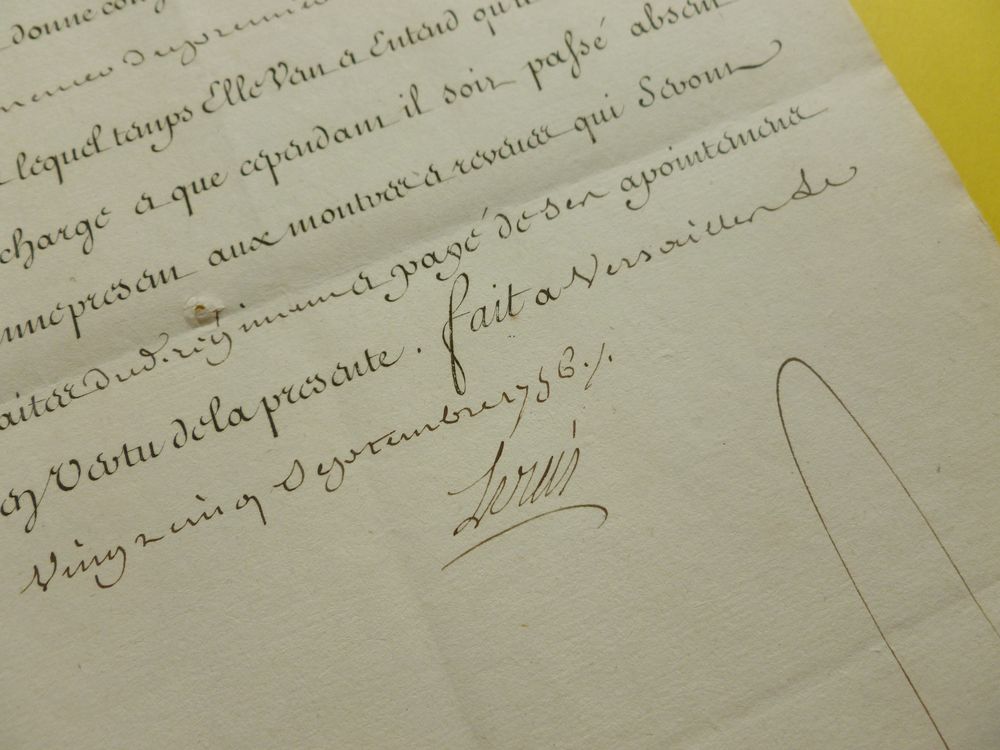 donne cong
lequel temps Elle Veu a Entend qu'il
charge a que cependant il soit passé absent
present aux montres a reveues qui Seront
du d. regiment a payé de ses apointemens
en Vertu de la presente. fait a Versailles Le
Vingt cinq Septembre 1756 ./.
Louis